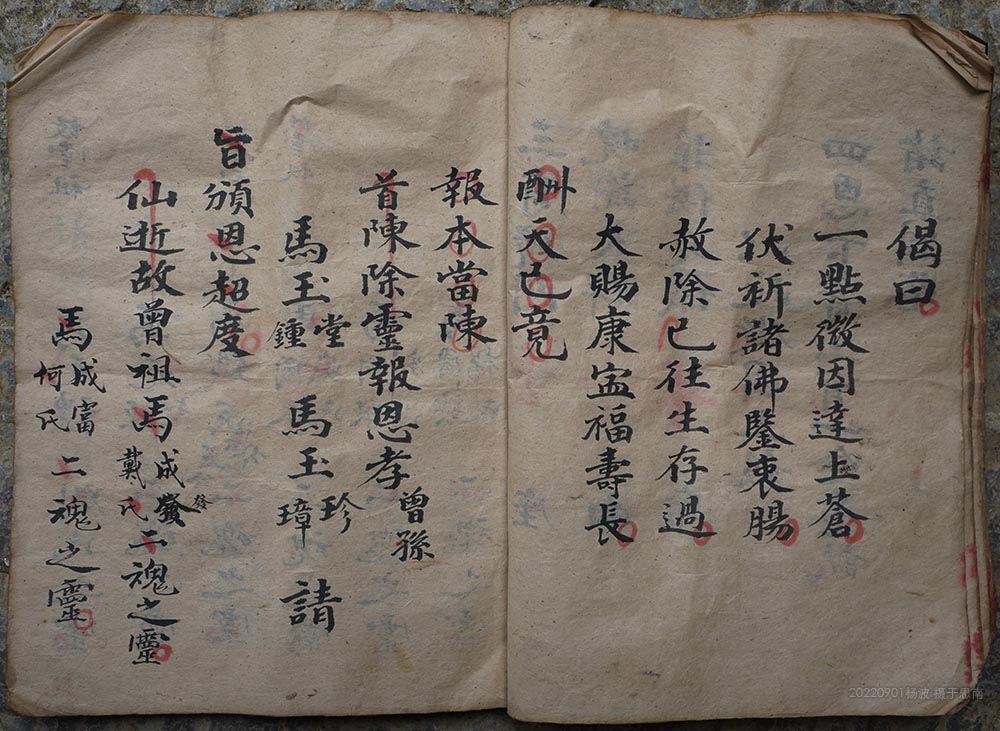 偈曰
一點微因達上蒼
伏祈諸佛鑒衷腸
赦除已往生存過
大賜康寍福壽長
酬天已竟
報本當陳
首陳除靈報恩孝曾孫
馬玉堂鍾 馬玉珍璋 請
旨頒恩超度
仙逝故曾祖馬成發發戴氏二魂之靈
馬成富何氏二魂之靈
20220901杨波 摄于思南